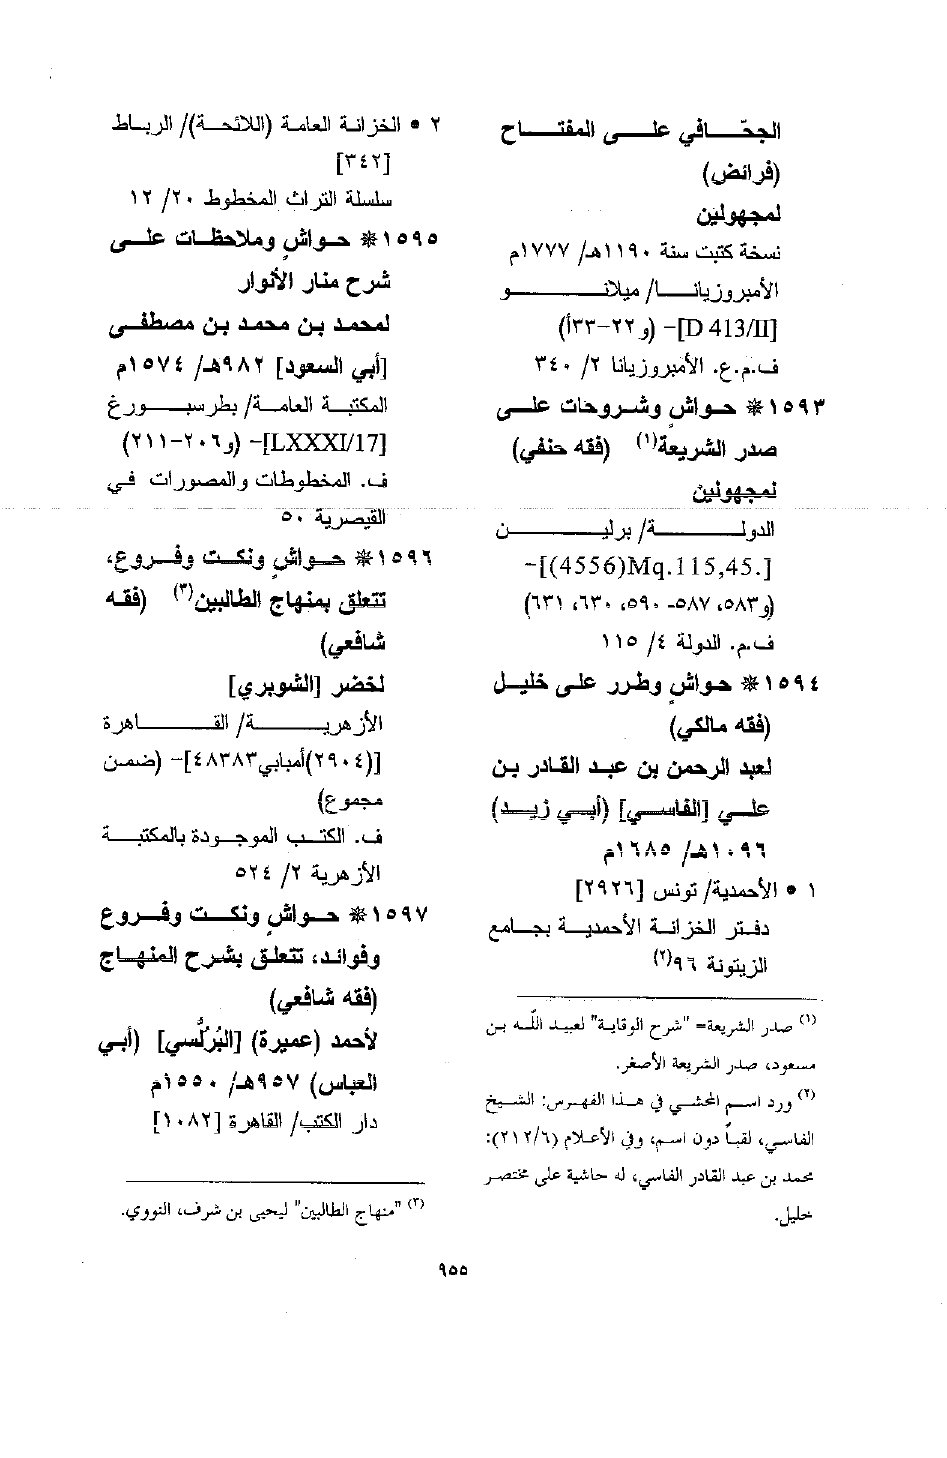 الجحّافي على المفتاح
(فرائض)
لمجهولين
نسخة كتبت سنة ١١٩٠هـ/ ١٧٧٧م
الأمبروزيانا/ ميلانو
[D 413/II]- (و٢٢-٣٣أ)
ف.م.ع. الأمبروزيانا ٢/ ٣٤٠
١٥٩٣* حواشٍ وشروحات على
صدر الشريعة(١) (فقه حنفي)
لمجهولين
الدولة/ برلين
[.(4556)Mq.115,45]-
(و٥٨٣، ٥٨٧-٥٩٠، ٦٣٠، ٦٣١)
ف.م. الدولة ٤/ ١١٥
١٥٩٤* حواشٍ وطرر على خليل
(فقه مالكي)
لعبد الرحمن بن عبد القادر بن
علي [الفاسي] (أبي زيد)
١٠٩٦هـ/ ١٦٨٥م
١ • الأحمدية/ تونس [٢٩٢٦]
دفتر الخزانة الأحمدية بجامع
الزيتونة ٩٦(٢)
(١) صدر الشريعة= "شرح الوقاية" لعبيد الله بن
مسعود، صدر الشريعة الأصغر.
(٢) ورد اسم المحشي في هذا الفهرس: الشيخ
الفاسي، لقباً دون اسم، وفي الأعلام (٢١٢/٦):
محمد بن عبد القادر الفاسي، له حاشية على مختصر
خليل.
٢ • الخزانة العامة (اللائحة)/ الرباط
[٣٤٢]
سلسلة التراث المخطوط ٢٠/ ١٢
١٥٩٥* حواشٍ وملاحظات على
شرح منار الأنوار
لمحمد بن محمد بن مصطفى
[أبي السعود] ٩٨٢هـ/ ١٥٧٤م
المكتبة العامة/ بطرسبورغ
[LXXXI/17]- (و٢٠٦-٢١١)
ف. المخطوطات والمصورات في
القيصرية ٥٠
١٥٩٦* حواشٍ ونكت وفروع،
تتعلق بمنهاج الطالبين(٣) (فقه
شافعي)
لخضر [الشوبري]
الأزهرية/ القاهرة
[(٢٩٠٤)أمبابي٤٨٣٨٣]- (ضمن
مجموع)
ف. الكتب الموجودة بالمكتبة
الأزهرية ٢/ ٥٢٤
١٥٩٧* حواشٍ ونكت وفروع
وفوائد، تتعلق بشرح المنهاج
(فقه شافعي)
لأحمد (عميرة) [البُرُلُّسي] (أبي
العباس) ٩٥٧هـ/ ١٥٥٠م
دار الكتب/ القاهرة [١٠٨٢]
(٣) "منهاج الطالبين" ليحيى بن شرف، النووي.
٩٥٥